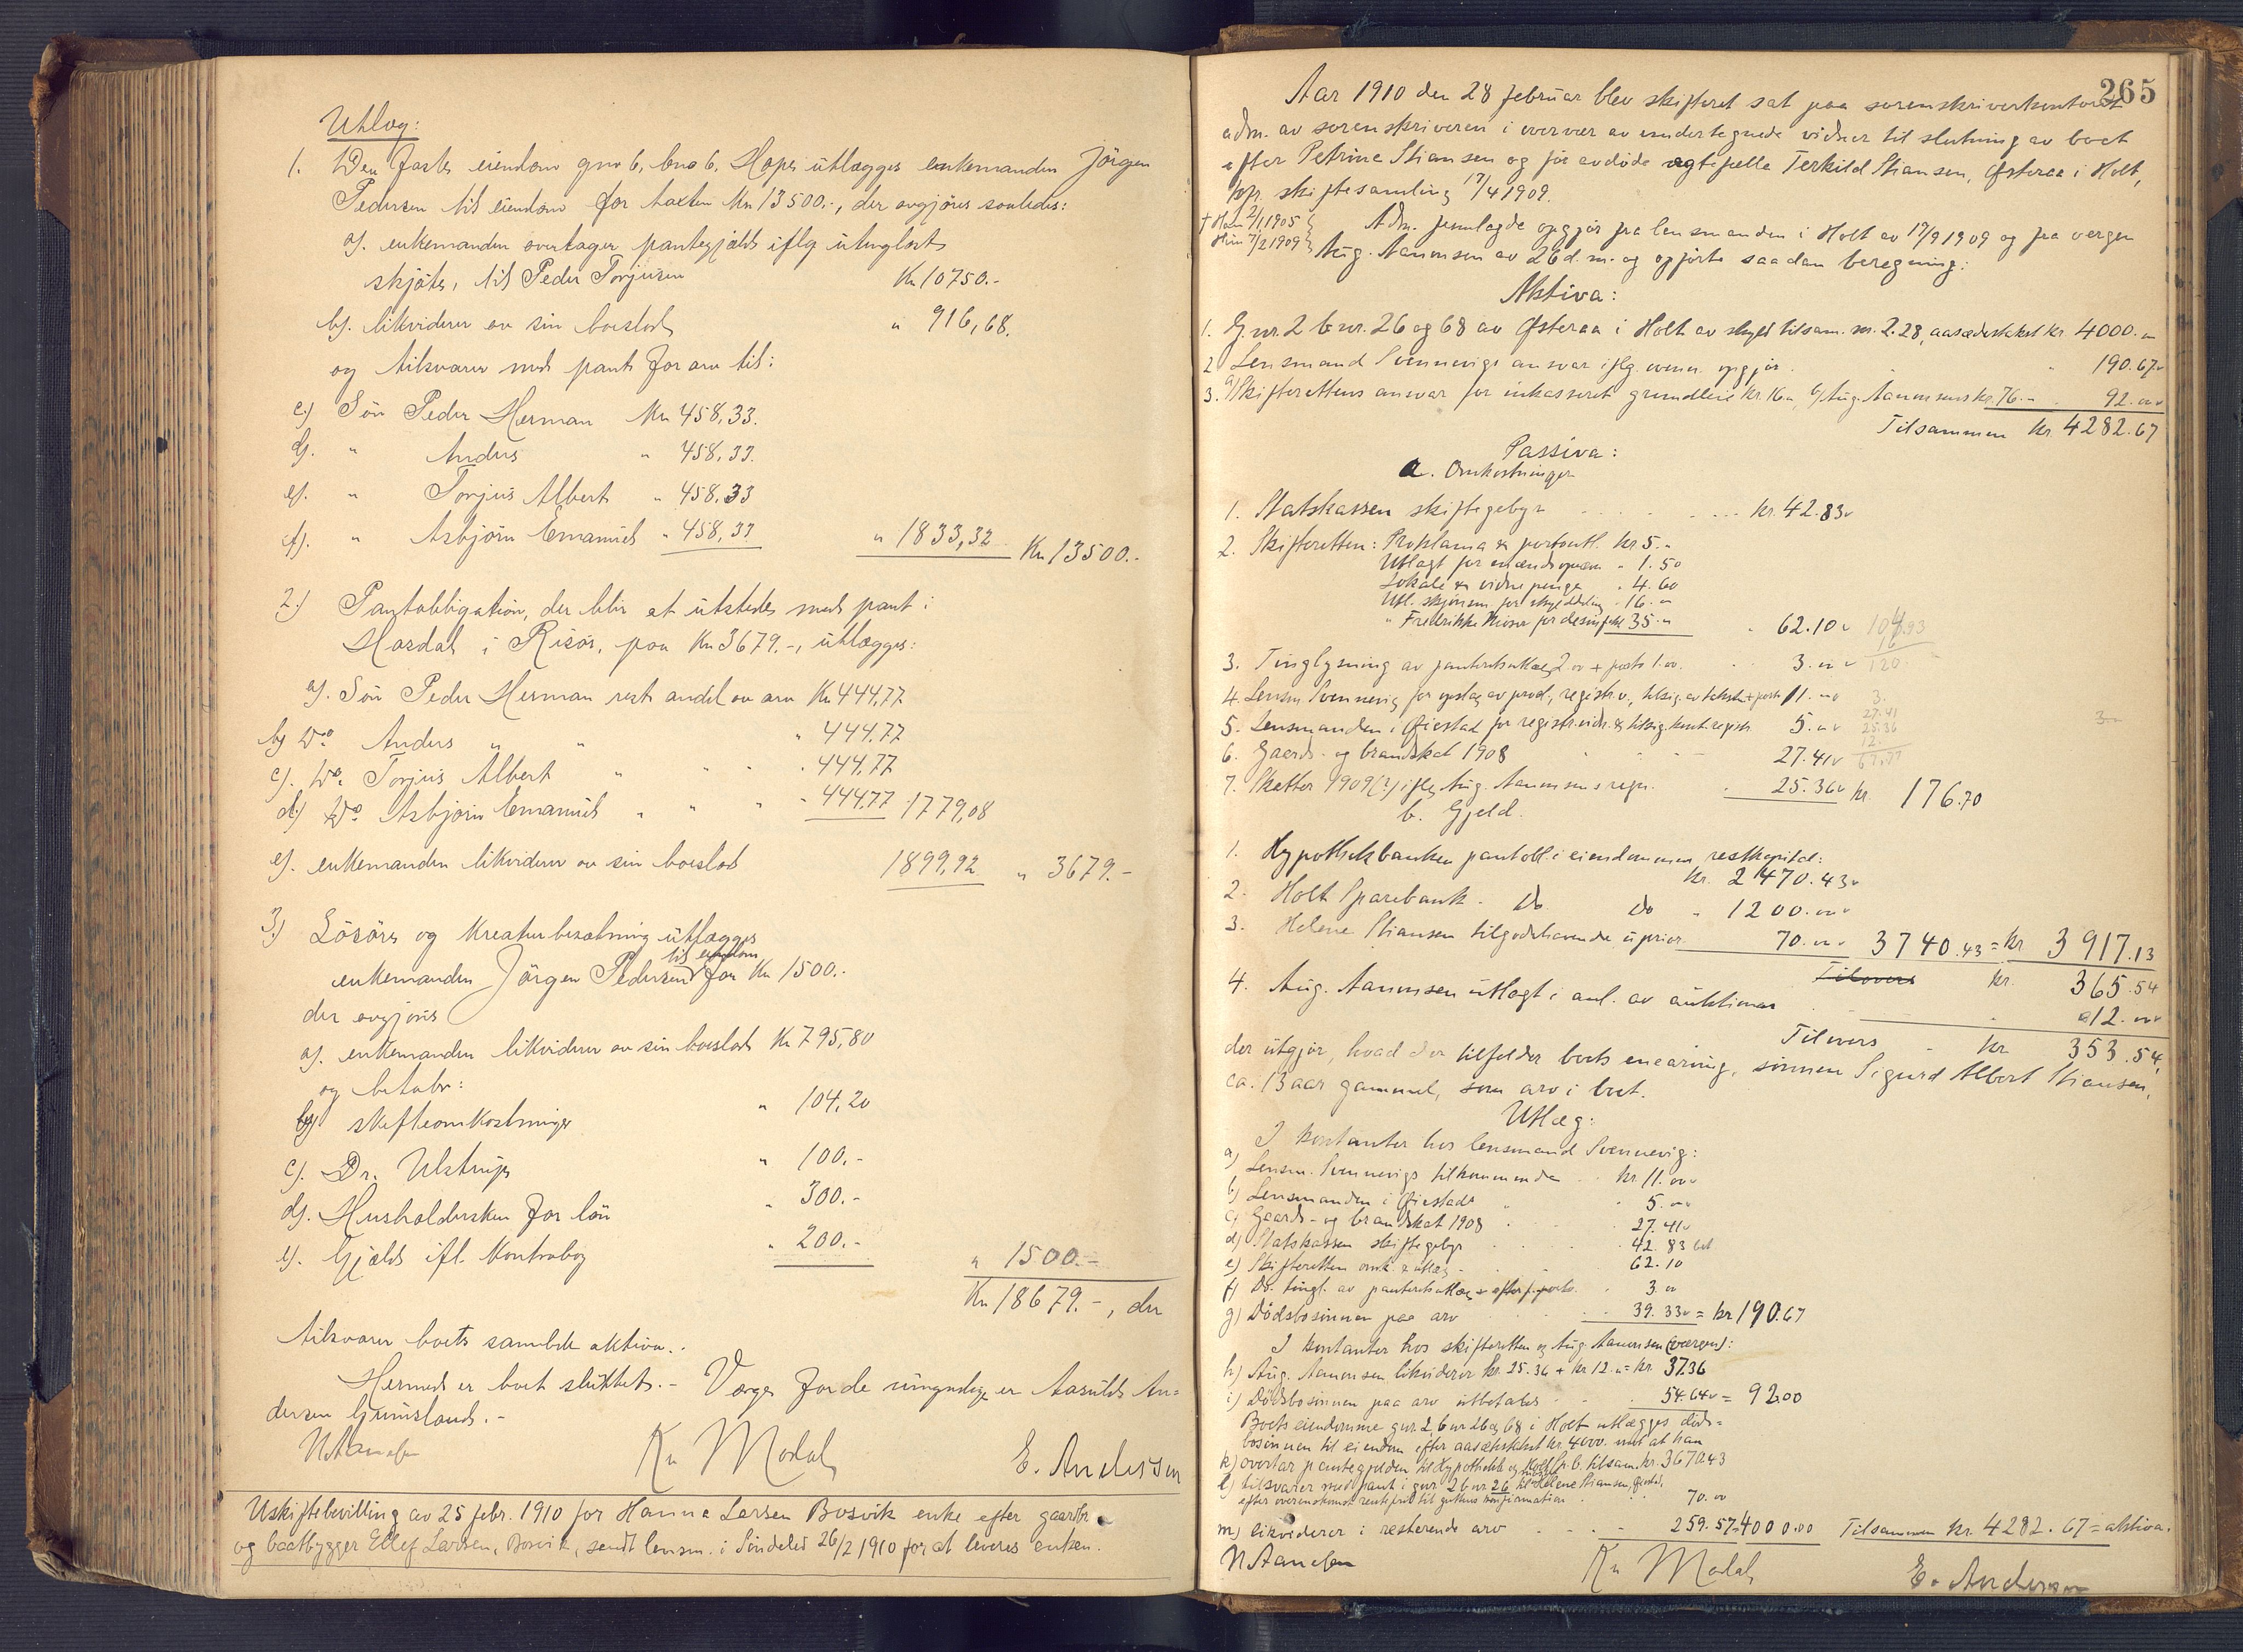 Utlæg:
1. Den faste eiendom gno 6, bno 6, Hope utlægges enkemanden Jörgen
Pedersen til eiendom for taxten Kr 13500.-, der avgjöres saaledes:
a). enkemanden overtager pantegjæld iflg utinglæst
skjöte, til Peder Torjusen Kr 10750.-
b). likviderer av sin boeslod " 916,68.
og tilsvarer med pant for arv til:
c) Sön Peder Herman Kr 458,33.
d). " Anders " 458,33.
e). " Torjus Albert " 458,33
f). " Asbjörn Emanuel " 458,33 " 1833,32 Kr 13500.-
2.) Pantobligation, der blir at utstede med pant i
Hasdal i Risör, paa Kr 3679.-, utlægges:
a). Sön Peder Herman rest andel av arv Kr 444,77
b) Do Anders " " " 444,77
c). Do. Torjus Albert " " " 444,77
d.) Do Asbjörn Emanuel " " " 444,77 1779,08
e). enkemanden likviderer av sin boeslod 1899,92 " 3679.-
3.) Lösöre og kreaturbesætning utlægges
enkemanden Jörgen Pedersen til eiendom for Kr 1500.-
der avgjöres
a). enkemanden likviderer av sin boeslod Kr 795,80
og betaler:
b) skifteomkostninger " 104,20
c). Dr. Ulstrup " 100.-
d). Husholdersken for lön " 300.-
e). Gjæld ifl. Kontrabog " 200.- " 1500.-
Kr 18679.-, der
tilsvarer boets samlede aktiva.
Hermed er boet sluttet.- Verge for de umyndige er Aasuld An=
dersen Grimsland.-
Kr Modal E. Andersen
Uskiftebevilling av 25 febr. 1910 for Hanna Larsen Bosvik enke efter gaardbr.
og baatbygger Ellef Larsen, Bosvik, sendt lensm. i Söndeled 26/2 1910 for at leveres enken.
265
Aar 1910 den 28 februar blev skifteret sat paa sorenskriverkontoret
adm. av sorenskriveren i overvær av undertegnede vidner til slutning av boet
efter Petrine Stiansen og før avdøde ægtefælle Terkild Stiansen, Østeraa i Holt,
kfr. skiftesamling 17/4 1909.
† Han 2/1 1905
Hun 7/2 1909
Adm. fremlagde opgjør fra lensmanden i Holt av 17/9 1909 og fra vergen
Aug. Aamonsen av 26 d. m. og opførte saadan beregning:
Aktiva:
1. G.nr. 2 b.nr. 26 og 68 av Østeraa i Holt av skyld tilsam. m. 2.28, aasædestakst kr. 4000.-
2 Lensmand Svennevigs ansvar iflg. ovenn. opgjør. " 190.67
3. a) Skifterettens ansvar for inkasseret grundleie kr. 16.-, b) Aug. Aamonsens kr. 76.- 92.-
Tilsammen kr. 4282.67
Passiva:
a. Omkostninger
1. Statskassen skiftegebyr kr. 42.83
2. Skifteretten: Proklama & portoutl. kr. 5.-
Utlagt for " 1.50
Lokale & vidnepenge " 4.60
Utl. skjönsm. for skylddeling " 16.-
" Fredrikke for desinfekt. 35.- " 62.10
3. Tinglysning av panteretsutlæg 2.- + porto 1.00. 3.-
4. Lensm. Svennevig for opslag av procl., registr. v., tilsig. av takstm. + porto 11.-
5. Lensmanden i Øiestad for registr.vidn. & tilsig. 5.-
6. Gaards- og brandskat 1908 27.41
7. Skatter 1909 (?) iflg. Aug. Aamonsens regn. 25.36 kr. 176.70
b. Gjeld.
1. Hypothekbanken pantobl. i eiendommen, restkapital:
kr. 2470.43
2. Holt Sparebank - Do Do " 1200.-
3. Helene Stiansen tilgodehavende uprior. 70.- 3740.43 = kr 3917.13
Tilovers kr. 365.54
4. Aug. Aamonsen utlagt i anl. av auktionen " 12.-
Tilovers kr 353.54,
der utgjør, hvad der tilfalder boets enearving, sönnen Sigurd Albert Stiansen,
ca. 13 aar gammel, som arv i boet.
Utlæg:
I kontanter hos lensmand Svennevig:
a) Lensm. Svennevigs tilkommende kr. 11.-
b) Lensmanden i Øiestad " 5.-
c) Gaards- og brandskat 1908 27.41
d) Statskassen skiftegebyr 42.83
e) Skifteretten omk. & utlæg 62.10
f) Do. tingl. av panteretsutlæg 3.-
g) Dödsbosönnen paa arv 39.33 = kr 190.67
I kontanter hos skifteretten og Aug. Aamonsen (vergen):
h) Aug. Aamonsen likviderer kr. 25.36 + kr 12.- = kr. 37.36
i) Dödsbosönnen paa arv utbetales 54.64 = 92.00
Boets eiendomme gnr. 2 bnr 26 og 68 i Holt utlægges döds=
bosönnen til eiendom efter aasætestakst kr. 4000. mot at han
k) overtar pantegjelden til Hypothekb. og Holt Sp.b. tilsam. kr. 3670.43
l) tilsvarer med pant i gnr. 2 bnr. 26 til Helene Stiansen,
efter overenskomst rentefrit til guttens konfirmation 70.-
m) likviderer i resterende arv 259.57 = 4000.00 Tilsammen kr. 4282.67 = aktiva.
Kr Modal E. Andersen